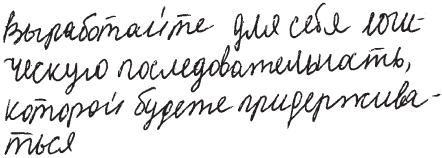 Выработайте для себя логи-
ческую последовательность,
которой будете придержива-
ться